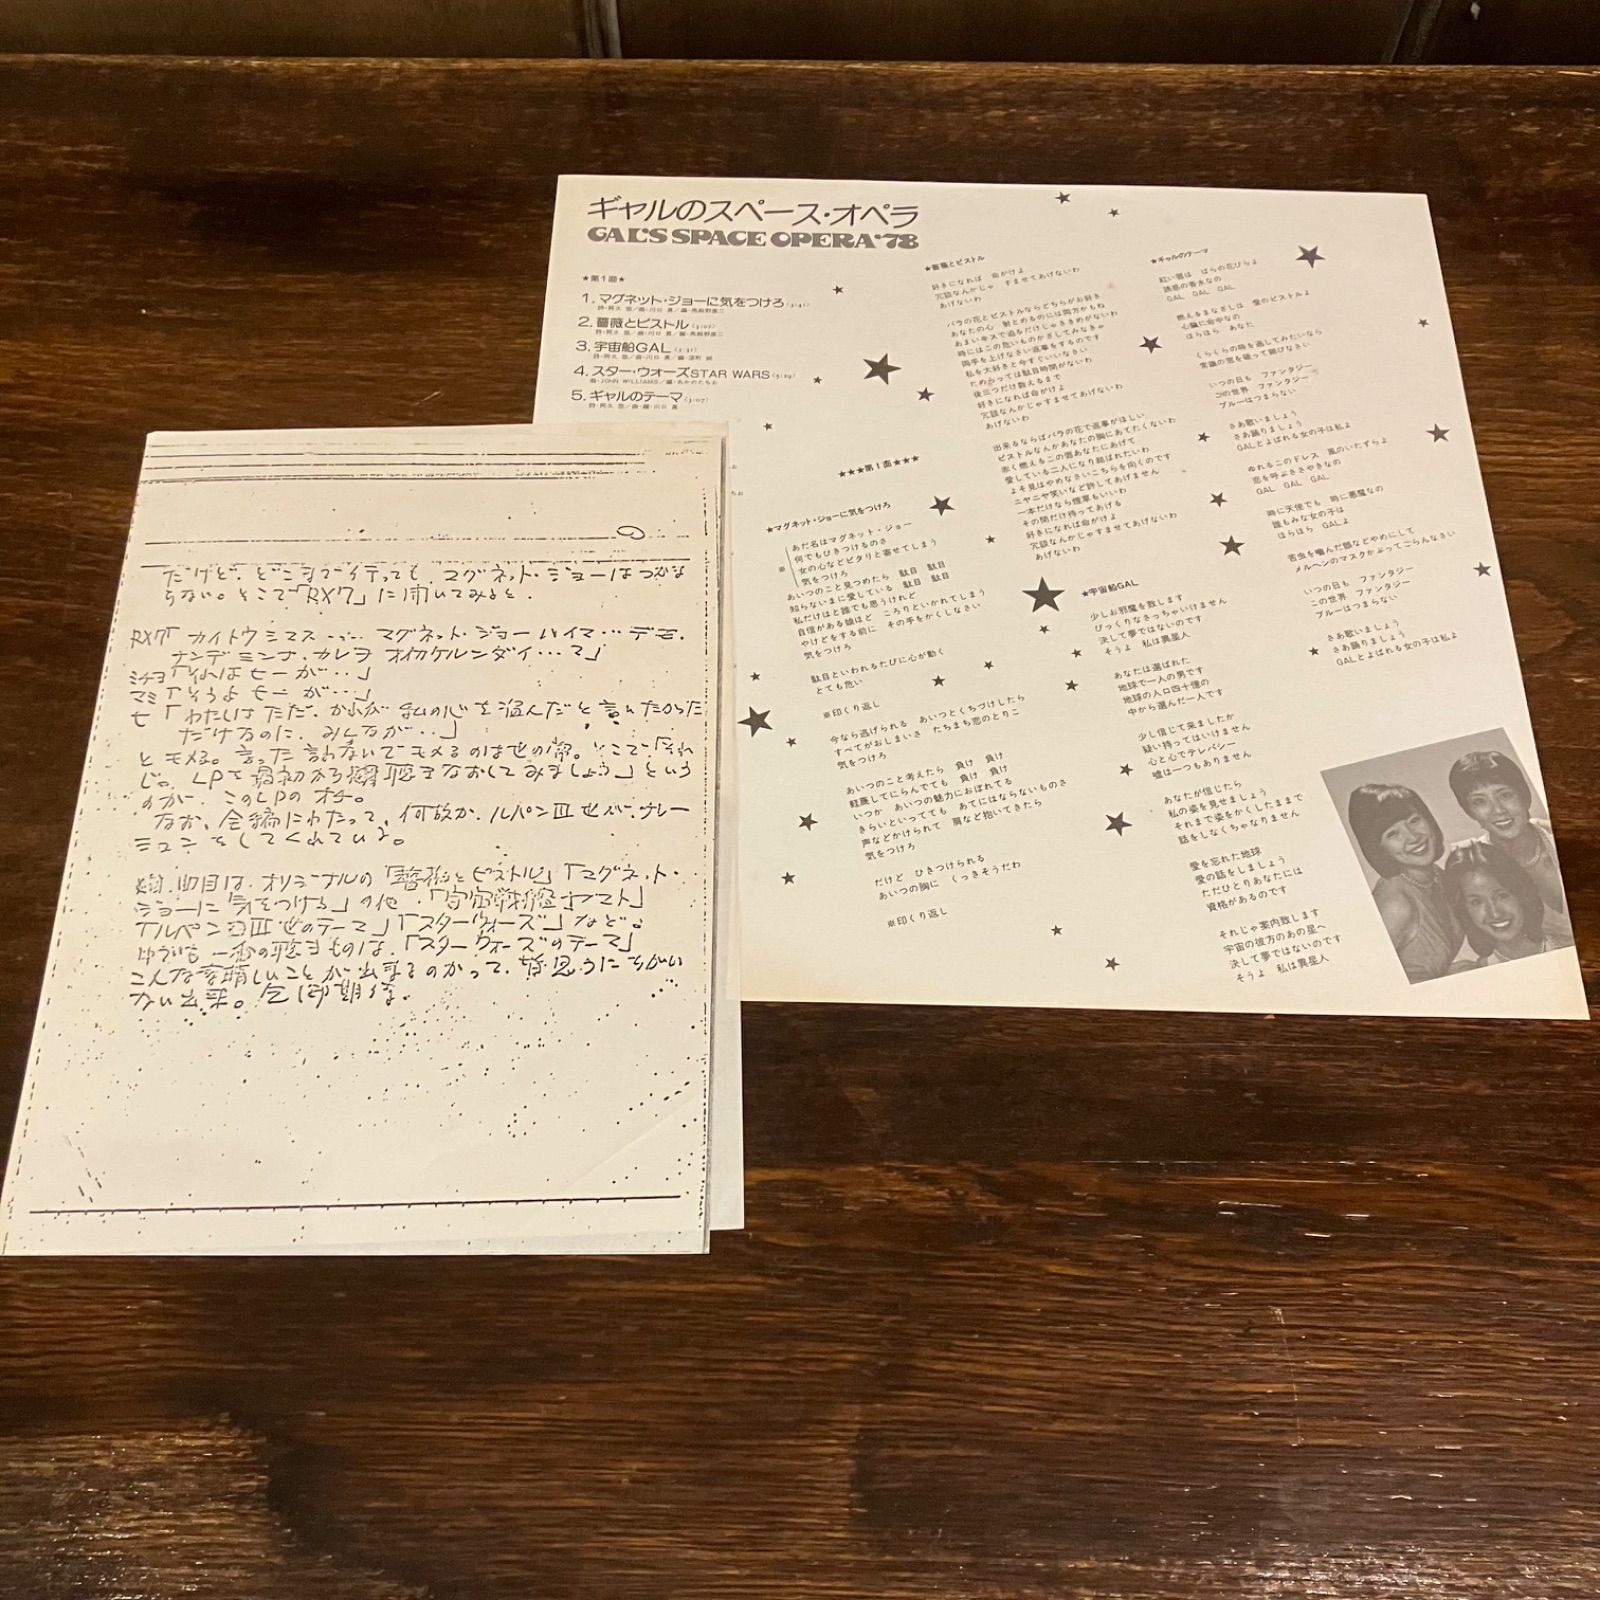 ギャルのスペース・オペラ
GAL'S SPACE OPERA '78
★第1面★
1. マグネット・ジョーに気をつけろ
2. 薔薇とピストル
3. 宇宙船GAL
4. スター・ウォーズ STAR WARS
曲・JOHN WILLIAMS
5. ギャルのテーマ
★★★第1面★★★
★マグネット・ジョーに気をつけろ
あだ名はマグネット・ジョー
何でもひきつけるのさ
女の心などピタリと寄せてしまう
気をつけろ
あいつのこと見つめたら 駄目 駄目
知らないまに愛している 駄目 駄目
私だけはと誰でも思うけれど
自信がある娘ほど ころりといかれてしまう
やけどをする前に その手をかくしなさい
気をつけろ
駄目といわれるたびに心が動く
とても危い
※印くり返し
今なら逃げられる あいつとくちづけしたら
すべてがおしまいさ たちまち恋のとりこ
気をつけろ
あいつのこと考えたら 負け 負け
軽蔑してにらんでても 負け 負け
いつか あいつの魅力におぼれてる
きらいといってても あてにはならないものさ
声などかけられて 肩など抱いてきたら
気をつけろ
だけど ひきつけられる
あいつの胸に くっきそうだわ
※印くり返し
★薔薇とピストル
好きになれば 命がけよ
冗談なんかじゃ すませてあげないわ
あげないわ
バラの花とピストルならどちらがお好き
あなたの心 射とめるのには両方かもね
あまいキスで迫るだけじゃききめがないわ
時にはこの危いものかざしてみなきゃ
両手を上げなさい返事をするのです
私を大好きと今すぐいいなさい
ためらっては駄目時間がないわ
後三つだけ数えるまで
好きになれば命がけよ
冗談なんかじゃすませてあげないわ
あげないわ
出来るならばバラの花で返事がほしい
ピストルなんかあなたの胸にあてたくないわ
赤く燃えるこの唇あなたにあげて
愛している二人になり結ばれたいわ
よそ見はやめなさいこちらを向くのです
ニヤニヤ笑いなど許してあげません
一本だけなら煙草もいいわ
その間だけ待ってあげる
好きになれば命がけよ
冗談なんかじゃすませてあげないわ
あげないわ
★宇宙船GAL
少しお邪魔を致します
びっくりなさっちゃいけません
決して夢ではないのです
そうよ 私は異星人
あなたは選ばれた
地球で一人の男です
地球の人口四十億の
中から選んだ一人です
少し信じて来ましたか
疑い持ってはいけません
心と心でテレパシー
嘘は一つもありません
あなたが信じたら
私の姿を見せましょう
それまで姿をかくしたままで
話をしなくちゃなりません
愛を忘れた地球
愛の話をしましょう
ただひとりあなたには
資格があるのです
それじゃ案内致します
宇宙の彼方のあの星へ
決して夢ではないのです
そうよ 私は異星人
★ギャルのテーマ
紅い唇は ばらの花びらよ
誘惑の香水なの
GAL GAL GAL
燃えるまなざしは 愛のピストルよ
心臓に命中なの
ほらほら あなた
くらくらの時を過してみたいなら
常識の窓を破って跳びなさい
いつの日も ファンタジー
この世界 ファンタジー
ブルーはつまらない
さあ歌いましょう
さあ踊りましょう
GALとよばれる女の子は私よ
ゆれるこのドレス 風のいたずらよ
恋を呼ぶささやきなの
GAL GAL GAL
時に天使でも 時に悪魔なの
誰もみな女の子は
ほらほら GALよ
苦虫を噛んだ顔などやめにして
メルヘンのマスクかぶってごらんなさい
いつの日も ファンタジー
この世界 ファンタジー
ブルーはつまらない
さあ歌いましょう
さあ踊りましょう
GALとよばれる女の子は私よ
だけど、どこまで行っても、マグネット・ジョーはつかま
らない。そこで「RX7」に聞いてみると、
RX7「カイトウシマス…… マグネット・ジョーハイマ…デモ、
ナンデミンナ、カレヲ オイカケルンダイ…?」
ミチヨ「それは七一が…」
マミ「そうよ七一が…」
七「わたしはただ、かれが私の心を盗んだと言いたかった
だけなのに、みんなが…」
とモメる。言った言わないでモメるのは世の常。そこで「それ
じゃ。LPを最初から聴きなおしてみましょう」という
のが、このLPのオチ。
なお、全編にわたって、何故か、ルパンIII世が、ナレー
ションをしてくれている。
曲目は、オリジナルの「薔薇とピストル」「マグネット・
ジョーに気をつけろ」の他、「宇宙戦艦ヤマト」
「ルパンIII世のテーマ」「スターウォーズ」など。
中でも一番の聴きものは、「スターウォーズのテーマ」
こんな素晴しいことが出来るのかって、皆思うにちがい
ない出来。乞御期待。